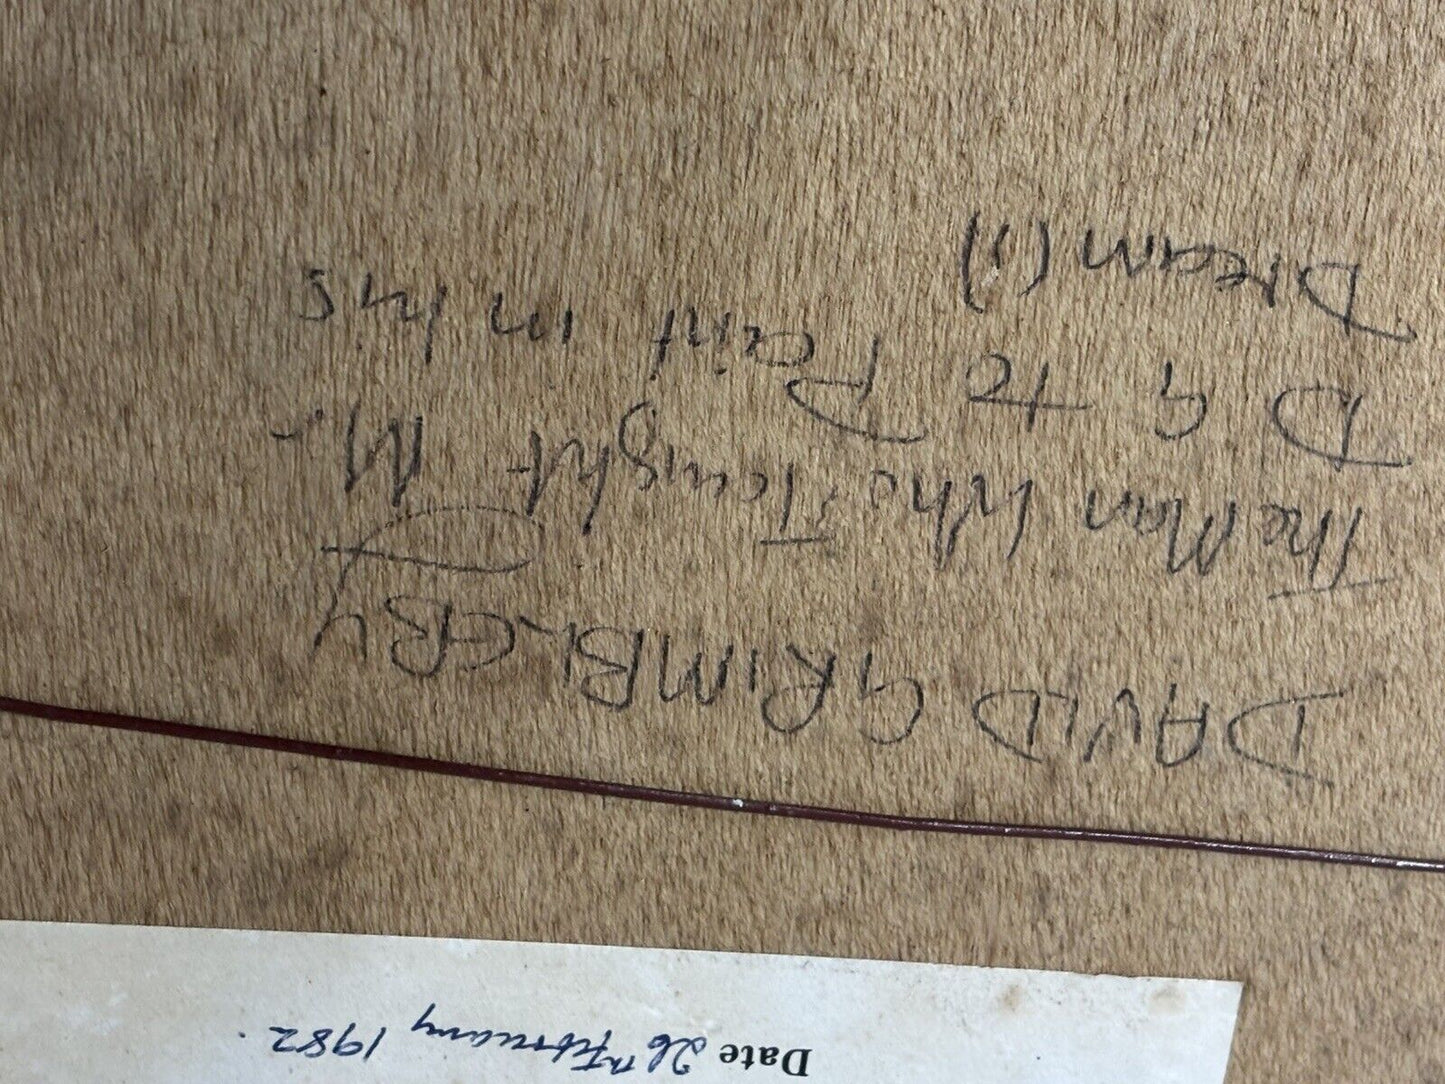 Date 26th February 1982.
DAVID GRIMBLEBY
The Man Who Taught Mr.
D G to Paint in his
Dream (1)